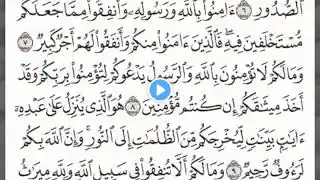 الصُّدُورِ ٦ ءَامِنُوا۟ بِٱللَّهِ وَرَسُولِهِۦ وَأَنفِقُوا۟ مِمَّا جَعَلَكُم
مُّسْتَخْلَفِينَ فِيهِ ۖ فَٱلَّذِينَ ءَامَنُوا۟ مِنكُمْ وَأَنفَقُوا۟ لَهُمْ أَجْرٌ كَبِيرٌ ٧
وَمَا لَكُمْ لَا تُؤْمِنُونَ بِٱللَّهِ وَٱلرَّسُولُ يَدْعُوكُمْ لِتُؤْمِنُوا۟ بِرَبِّكُمْ وَقَدْ
أَخَذَ مِيثَٰقَكُمْ إِن كُنتُم مُّؤْمِنِينَ ٨ هُوَ ٱلَّذِى يُنَزِّلُ عَلَىٰ عَبْدِهِۦٓ
ءَايَٰتٍۭ بَيِّنَٰتٍ لِّيُخْرِجَكُم مِّنَ ٱلظُّلُمَٰتِ إِلَى ٱلنُّورِ ۚ وَإِنَّ ٱللَّهَ بِكُمْ
لَرَءُوفٌ رَّحِيمٌ ٩ وَمَا لَكُمْ أَلَّا تُنفِقُوا۟ فِى سَبِيلِ ٱللَّهِ وَلِلَّهِ مِيرَٰثُ